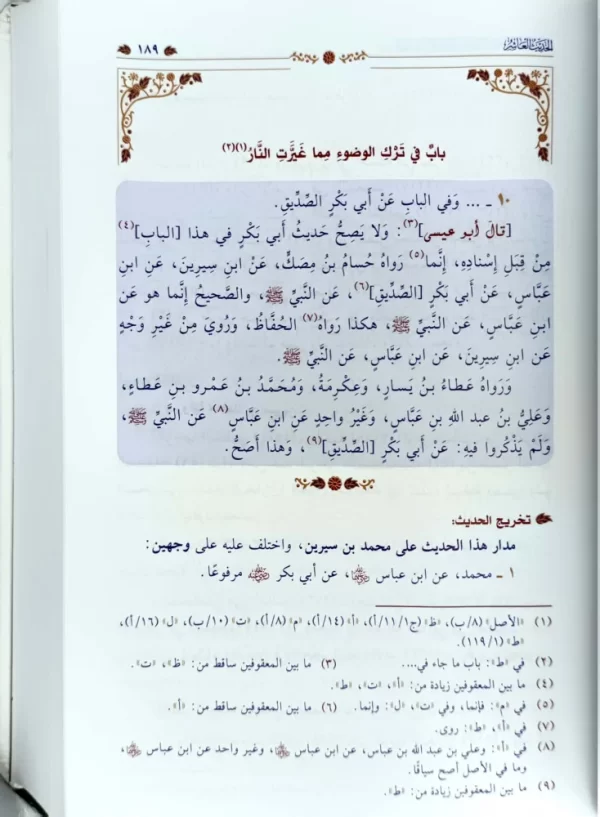 الحديث العاشر
١٨٩
بابٌ في تَرْكِ الوضوءِ مِما غَيَّرَتِ النَّارُ(١)(٢)
١٠ ـ ... وَفي البابِ عَنْ أَبي بَكْرٍ الصِّدِّيقِ.
[قالَ أبو عيسى](٣): وَلا يَصِحُّ حَديثُ أبي بَكْرٍ في هذا [البابِ](٤)
مِنْ قِبَلِ إِسْنادِهِ، إِنَّما(٥) رَواهُ حُسامُ بنُ مِصَكٍّ، عَنْ ابنِ سِيرينَ، عَنِ ابنِ
عَبَّاسٍ، عَنْ أَبي بَكْرٍ [الصِّدِّيقِ](٦)، عَن النَّبيِّ ﷺ، والصَّحيحُ إِنَّما هو عَن
ابنِ عَبَّاسٍ، عَن النَّبيِّ ﷺ، هكذا رَواهُ(٧) الحُفَّاظُ، وَرُوِيَ مِنْ غَيْرِ وَجْهٍ
عَن ابنِ سِيرينَ، عَن ابنِ عَبَّاسٍ، عَن النَّبيِّ ﷺ.
وَرَواهُ عَطاءُ بنُ يَسارٍ، وَعِكْرِمَةُ، وَمُحَمَّدُ بنُ عَمْرِو بنِ عَطاءٍ،
وَعَليُّ بنُ عبد اللهِ بنِ عَبَّاسٍ، وَغَيْرُ واحِدٍ عَن ابنِ عَبَّاسٍ(٨) عَن النَّبيِّ ﷺ،
وَلَمْ يَذْكُروا فيهِ: عَن أبي بَكْرٍ [الصِّدِّيقِ](٩)، وَهذا أَصَحُّ.
تخريج الحديث:
مدار هذا الحديث على محمد بن سيرين، واختلف عليه على وجهين:
١ ـ محمد، عن ابن عباس رضي الله عنهما، عن أبي بكر رضي الله عنه مرفوعًا.
(١) «الأصل» (٨/ب)، «ظ» (ج١/١١/أ)، «أ» (١٤/أ)، «م» (٨/أ)، «ت» (١٠/ب)، «ل» (١٦/أ)،
«ط» (١١٩/١).
(٢) في «ط»: باب ما جاء في.... (٣) ما بين المعقوفين ساقط من: «ظ»، «ت».
(٤) ما بين المعقوفين زيادة من: «أ»، «ت»، «ط».
(٥) في «م»: فإنما، وفي «ت»، «ل»: وإنما. (٦) ما بين المعقوفين ساقط من: «أ».
(٧) في «أ»، «ط»: روى.
(٨) في «أ»: وعلي بن عبد الله بن عباس، عن ابن عباس رضي الله عنهما، وغير واحد عن ابن عباس رضي الله عنهما،
وما في الأصل أصح سياقًا.
(٩) ما بين المعقوفين زيادة من: «ط».